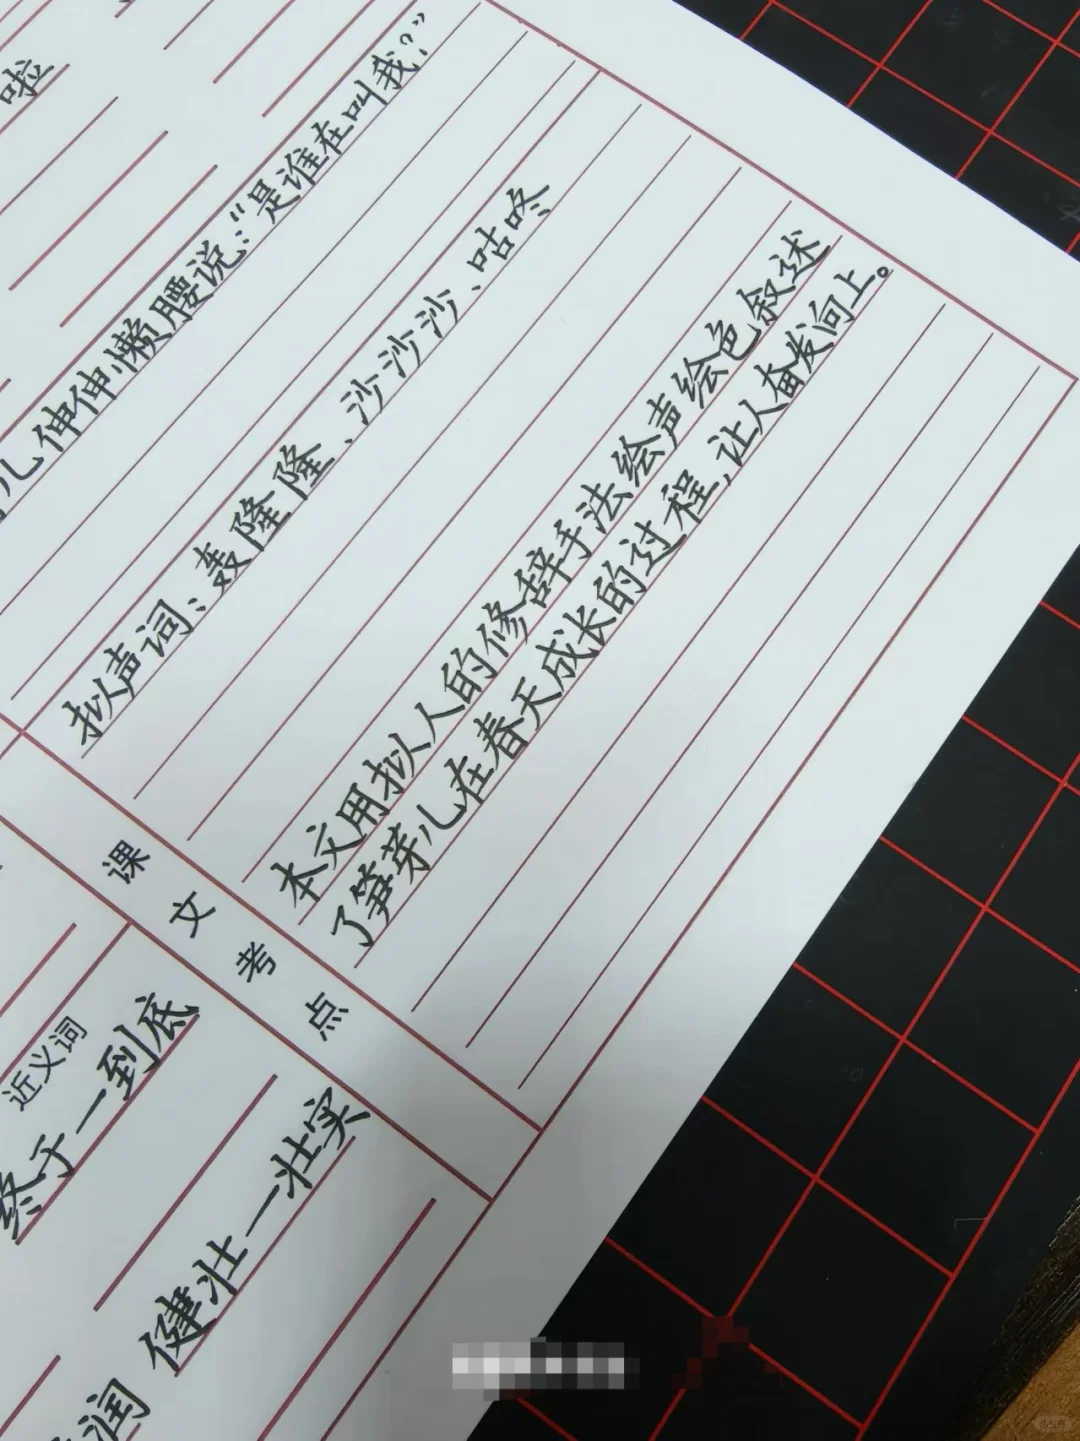 啦
儿伸伸懒腰说:“是谁在叫我?”
拟声词:轰隆隆、沙沙沙、咕咚
本文用拟人的修辞手法绘声绘色叙述
了笋芽儿在春天成长的过程,让人奋发向上。
课文考点
近义词
终于一到底
健壮一壮实
润